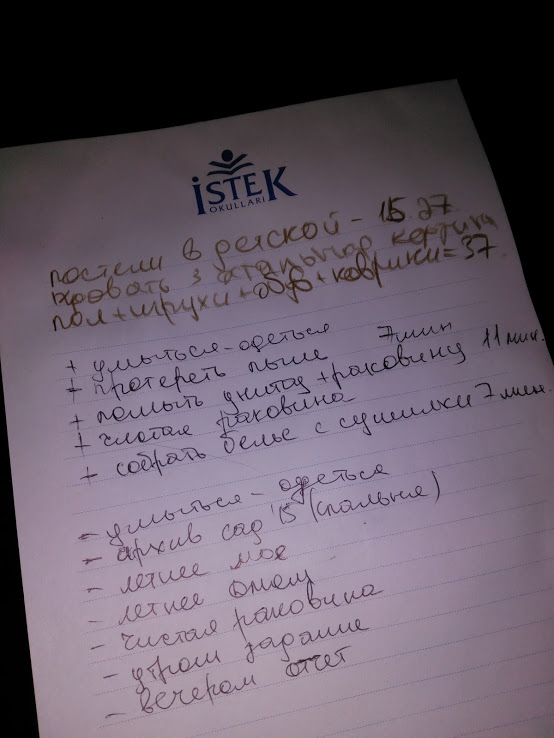 İSTEK
OKULLARI
постели в детской - 15 27
кровать 3 остальное картина
пол + игрухи + + коврики = 37
+ умыться - одеться
+ протереть пыль 7 мин
+ помыть унитаз + раковину 11 мин.
+ чистая раковина
+ собрать белье с сушилки 7 мин.
- умыться - одеться
- архив сад 15 (спальня)
- летнее мое
- летнее
- чистая раковина
- утром задание
- вечером отчет